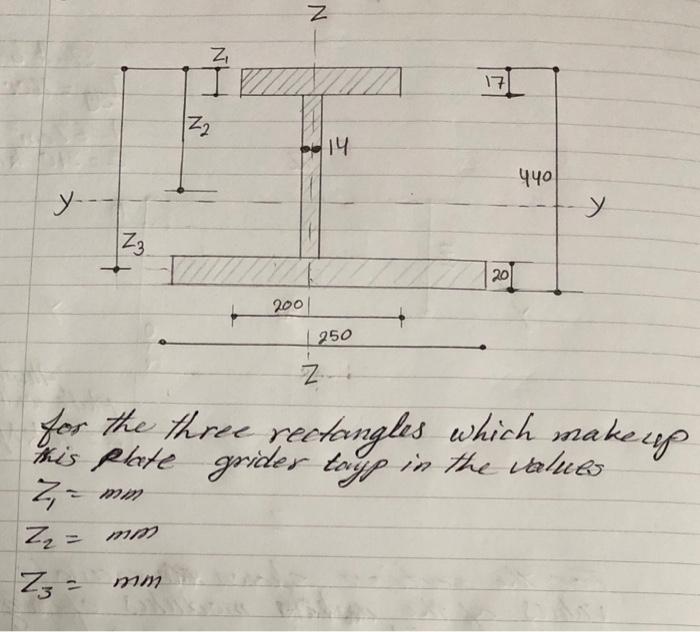 Z
Z1
17
Z2
14
440
y
y
Z3
20
200
250
Z
for the three rectangles which makeup
this plate grider tayp in the values
Z1 = mm
Z2 = mm
Z3 = mm